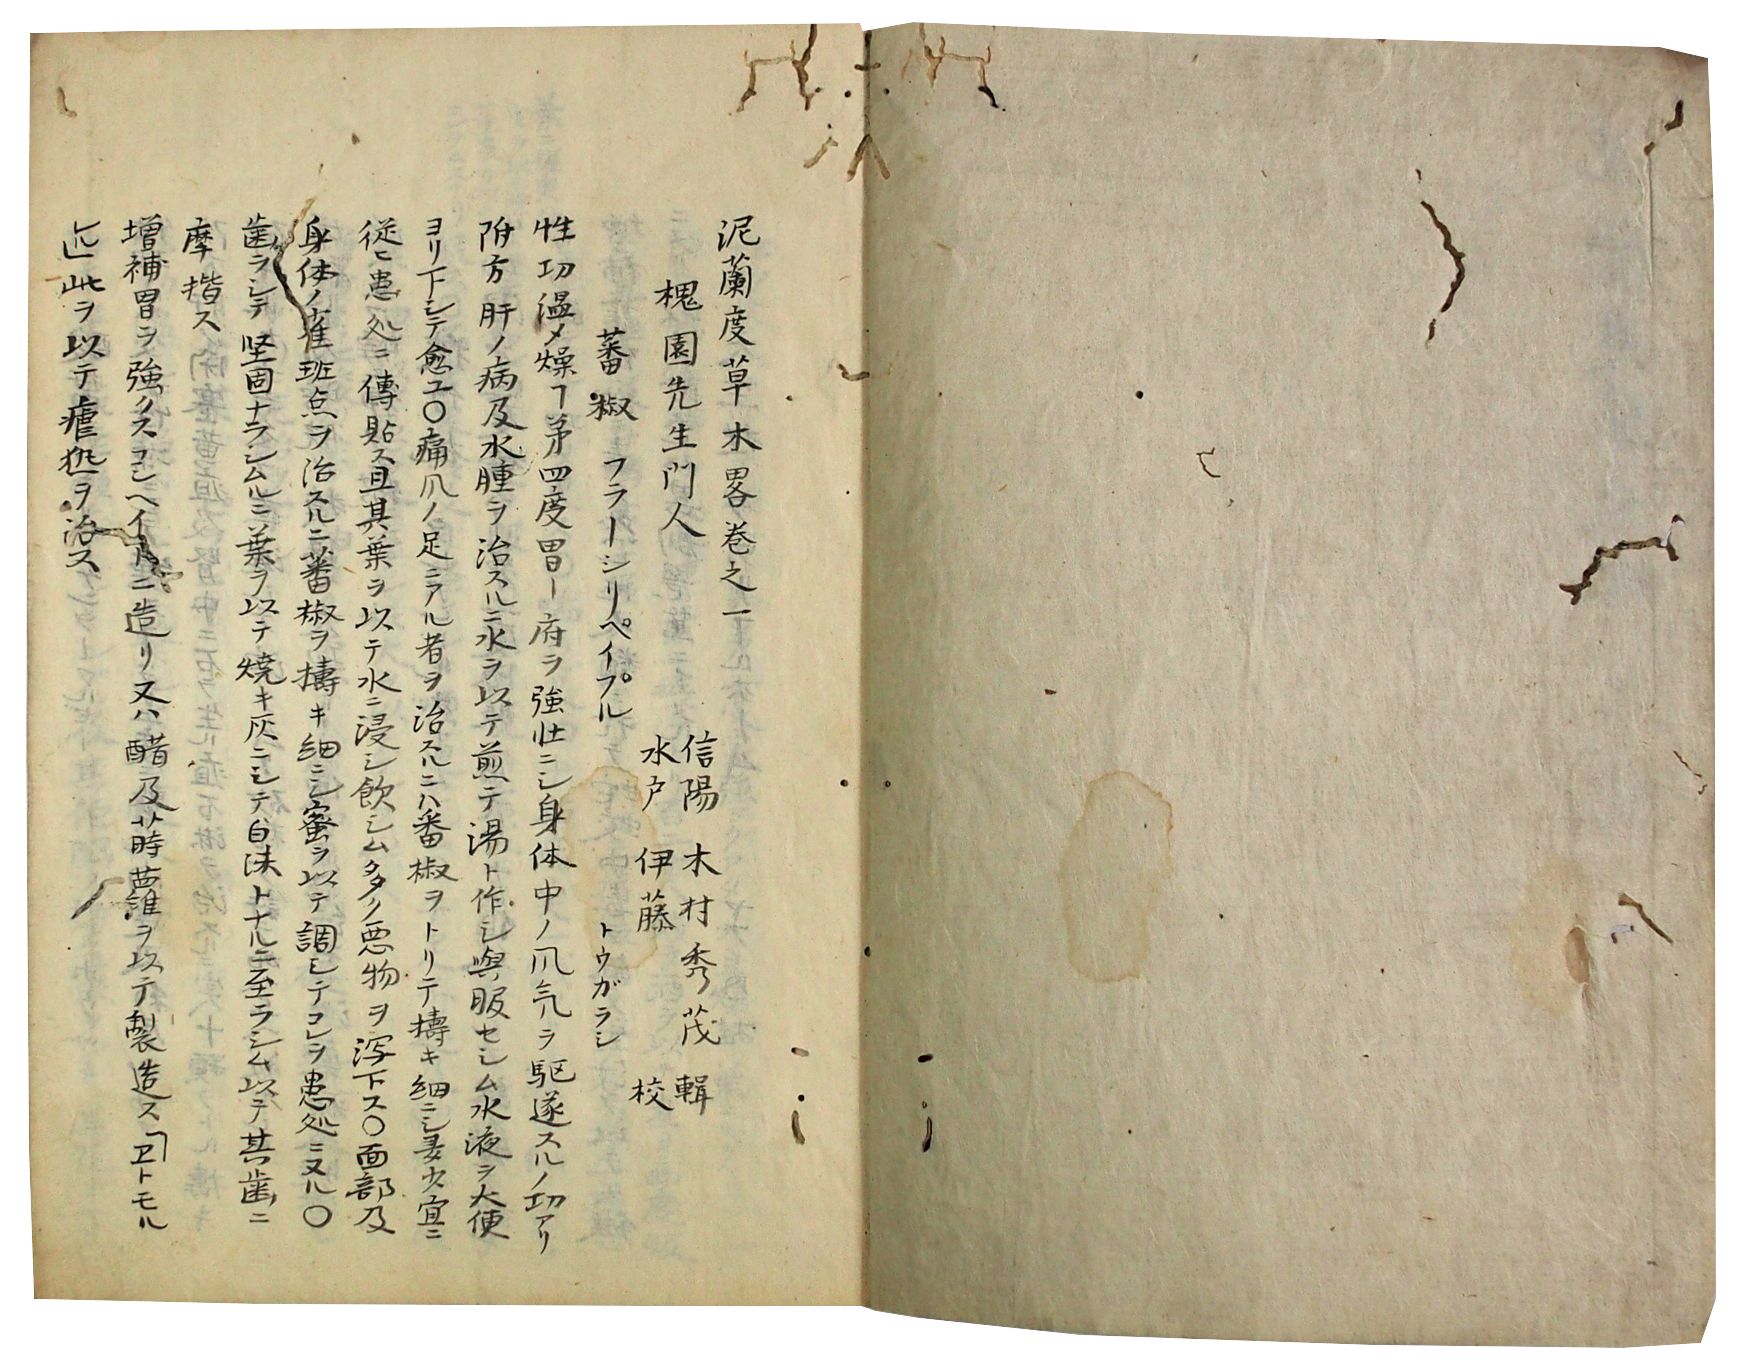 泥蘭度草木畧巻之一
槐園先生門人
信陽 木村秀茂 輯
水戸 伊藤 校
蕃椒 フラーシリペイプル トウガラシ
性功温メ燥フ苐四度胃ー府ヲ強壮ニシ身体中ノ爪気ヲ駆遂スルノ功アリ
附方肝ノ病及水腫ヲ治スルニ水ヲ以テ煎テ湯ト作シ與服セシム水液ヲ大便
ヨリ下シテ愈ユ〇痛爪ノ足ニアル者ヲ治スルニハ番椒ヲトリテ擣キ細ニシ宜ニ
従ヒ患処ニ傳貼ス且其葉ヲ以テ水ニ浸シ飲シム多ク悪物ヲ瀉下ス〇面部及
身体ノ雀斑点ヲ治スルニ蕃椒ヲ擣キ細ニシ蜜ヲ以テ調シテコレヲ患処ニヌル〇
歯ヲシテ堅固ナラシムルニ葉ヲ以テ焼キ灰ニシテ白沫トナルニ至ラシム以テ其歯ニ
摩揩ス
増補胃ヲ強クスコンヘイトニ造リ又ハ醋及蒔蘿ヲ以テ製造ス「ヱトモル
此ヲ以テ瘧ヲ治ス